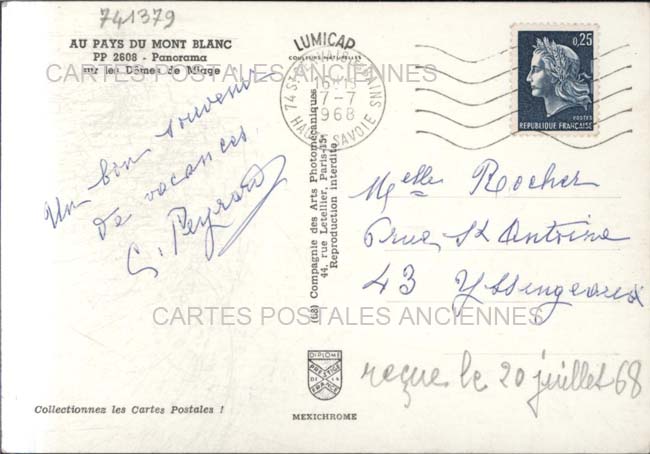 741379
AU PAYS DU MONT BLANC
PP 2608 - Panorama
sur les Dômes de Miage
LUMICAP
COULEURS NATURELLES
74 ST BAINS
7-7
1968
HAUTE SAVOIE
0,25
POSTES
REPUBLIQUE FRANÇAISE
CARTES POSTALES ANCIENNES
Un bon souvenir
de vacances.
G. Peyrard
(68) Compagnie des Arts Photomécaniques
44, rue Letellier, Paris-15e
Reproduction interdite
Melle Rocher
6 rue St Antoine
43 Yssingeaux
CARTES POSTALES ANCIENNES
reçue le 20 juillet 68
DIPLOME
PRESTIGE
DE LA
FRANCE
MEXICHROME
Collectionnez les Cartes Postales !